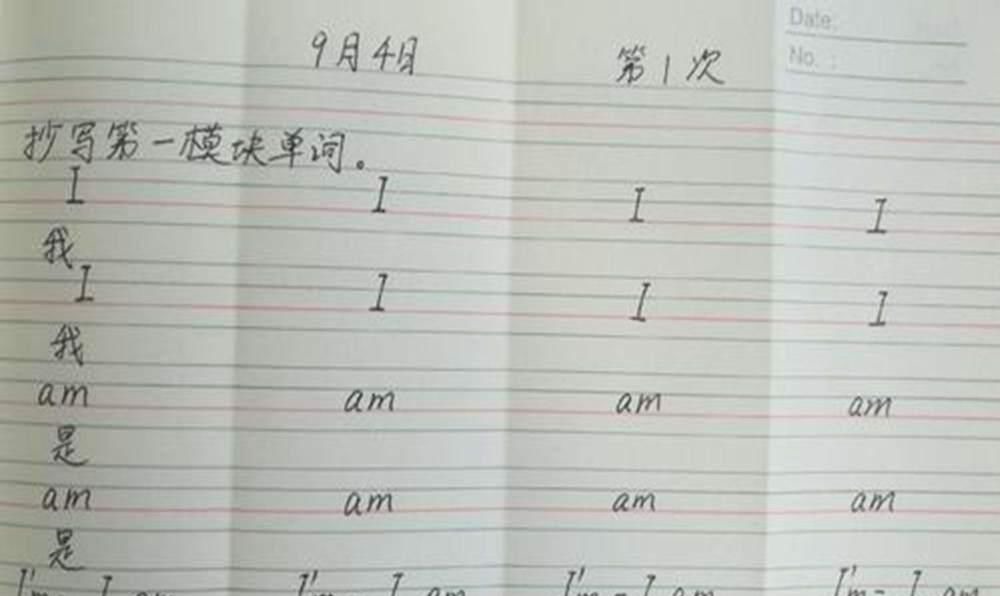 Date:
9月4日 第1次
No. :
抄写第一模块单词。
I I I I
我
I I I I
我
am am am am
是
am am am am
是
I'm- I am I'm- I am I'm-I am I'm- I am